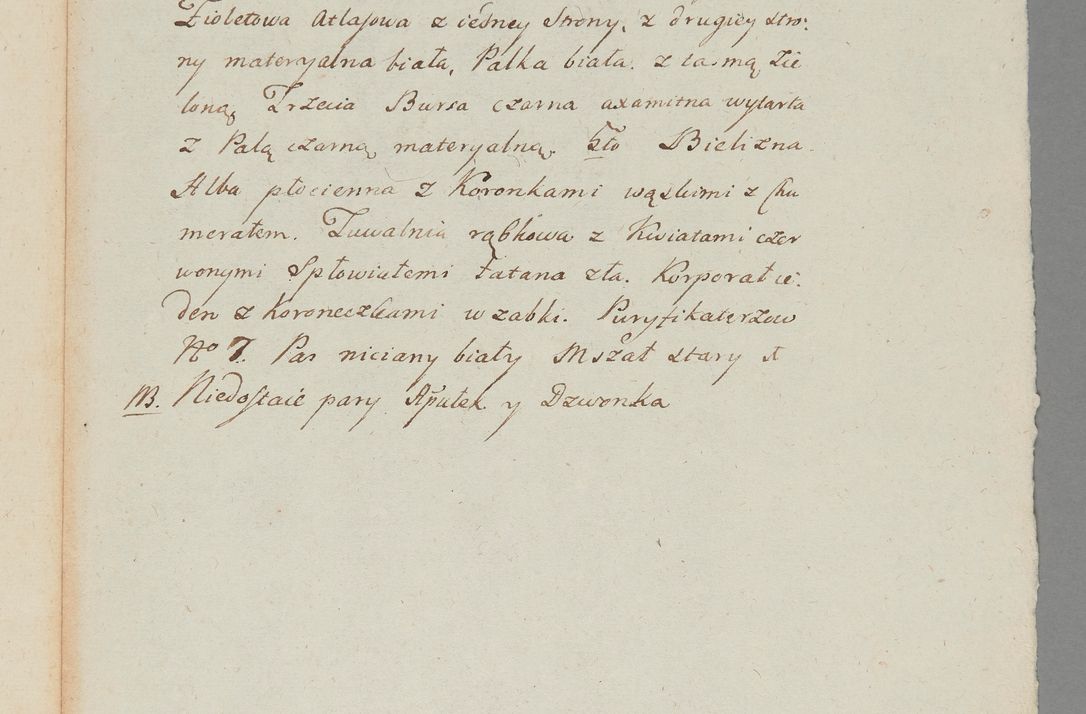 Fioletowa Atlasowa z iedney Strony, z drugiey stro:
ny materyalna biała, Palka biała. z tasmą Zie
loną, Trzecia Bursa czarna axamitna wytarta
z Palą czarną materyalną. 5to Bielizna.
Alba płocienna z Koronkami wąskimi z Chu
merałem. Tuwalnia rąbkowa z Kwiatami czer
wonymi Spłowiałemi Łatana zła. Korporał ie:
den z Koroneczkami w ząbki. Puryfikaterzow
No 7. Pas niciany biały Mszał stary
NB. Niedostaie pary Apułek y Dzwonka